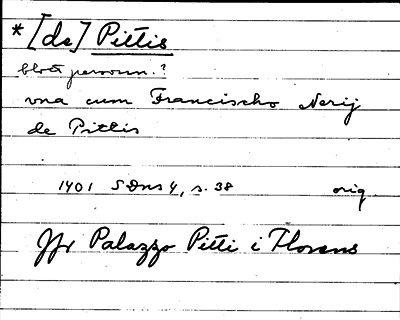 * [de] Pittis
blott personn.?
vna cum Francischo Nerij
de Pittis
1401 SDns 4, s. 38 orig
Jfr Palazzo Pitti i Florens